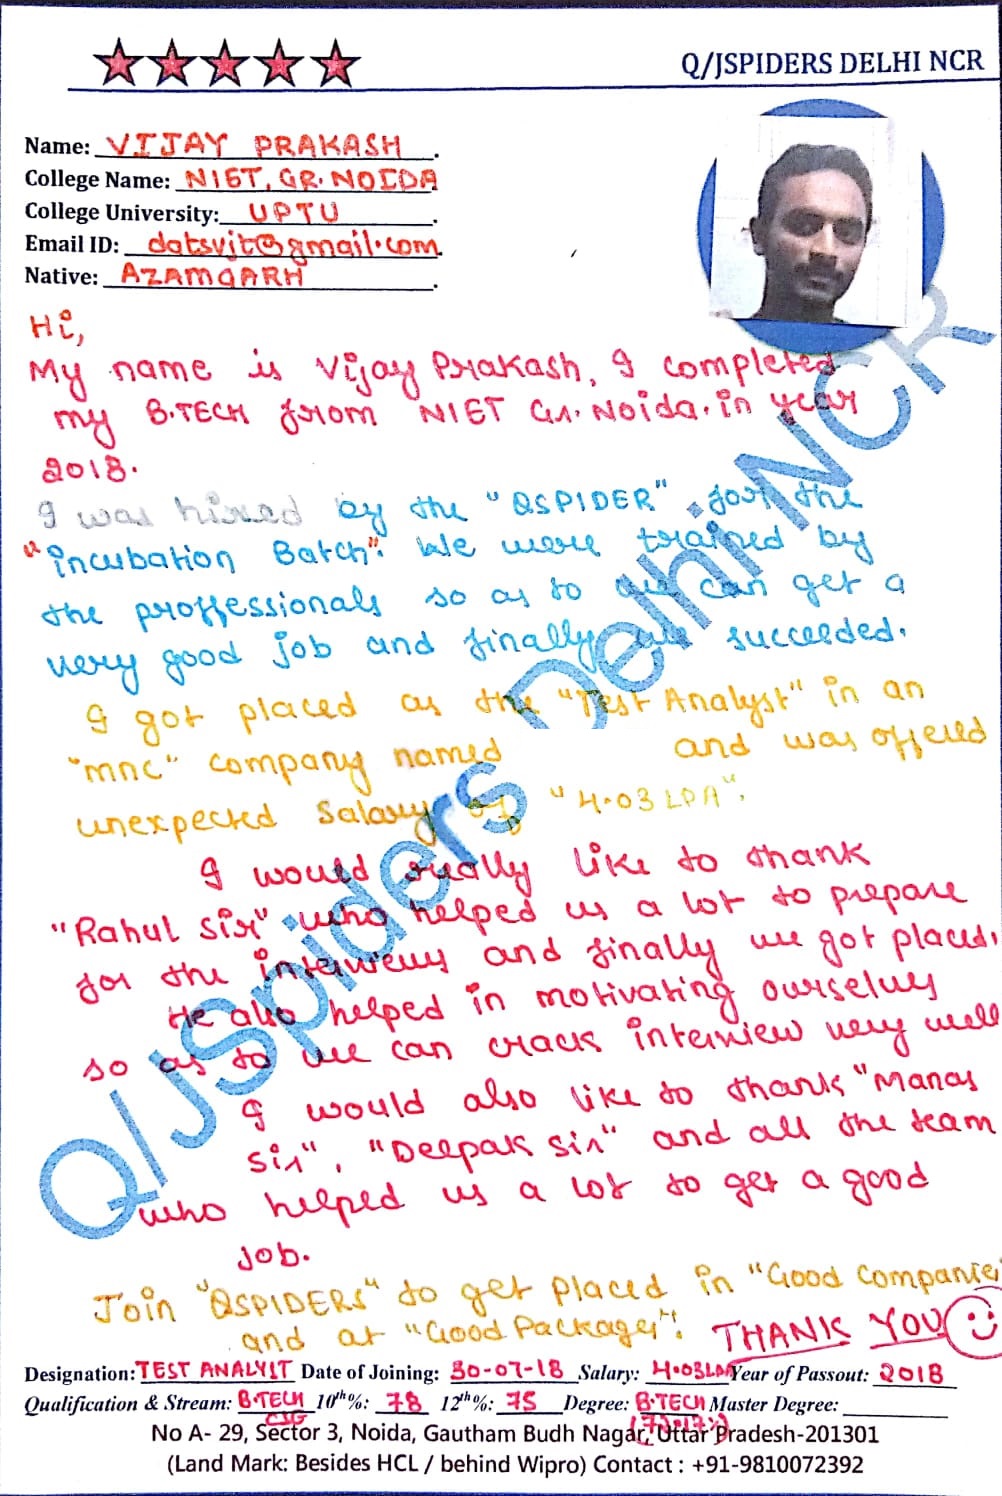 Q/JSPIDERS DELHI NCR
Name: VIJAY PRAKASH.
College Name: NIET, GR. NOIDA
College University: UPTU.
Email ID: datsvjt@gmail.com
Native: AZAMGARH.
Hi,
My name is Vijay Prakash, I completed
my B.TECH from NIET Gr. Noida. in year
2018.
I was hired by the "QSPIDER" for the
"Incubation Batch". We were trained by
the proffessionals so as to we can get a
very good job and finally we succeeded.
I got placed as the "Test Analyst" in an
"mnc" company named and was offered
unexpected Salary of "4.03 LPA".
I would really like to thank
"Rahul Sir" who helped us a lot to prepare
for the interviews and finally we got placed.
He also helped in motivating ourselves
so as to we can crack interview very well
I would also like to thank "Manas
Sir", "Deepak Sir" and all the team
who helped us a lot to get a good
job.
Join "QSPIDERS" to get placed in "Good Companies
and at "Good Package".
THANK YOU
Q/JSpiders Delhi NCR
Designation: TEST ANALYST Date of Joining: 30-07-18 Salary: 4.03LPA Year of Passout: 2018
Qualification & Stream: B.TECH 10th%: 78 12th%: 75 Degree: B.TECH Master Degree:
No A- 29, Sector 3, Noida, Gautham Budh Nagar, Uttar Pradesh-201301
(Land Mark: Besides HCL / behind Wipro) Contact : +91-9810072392